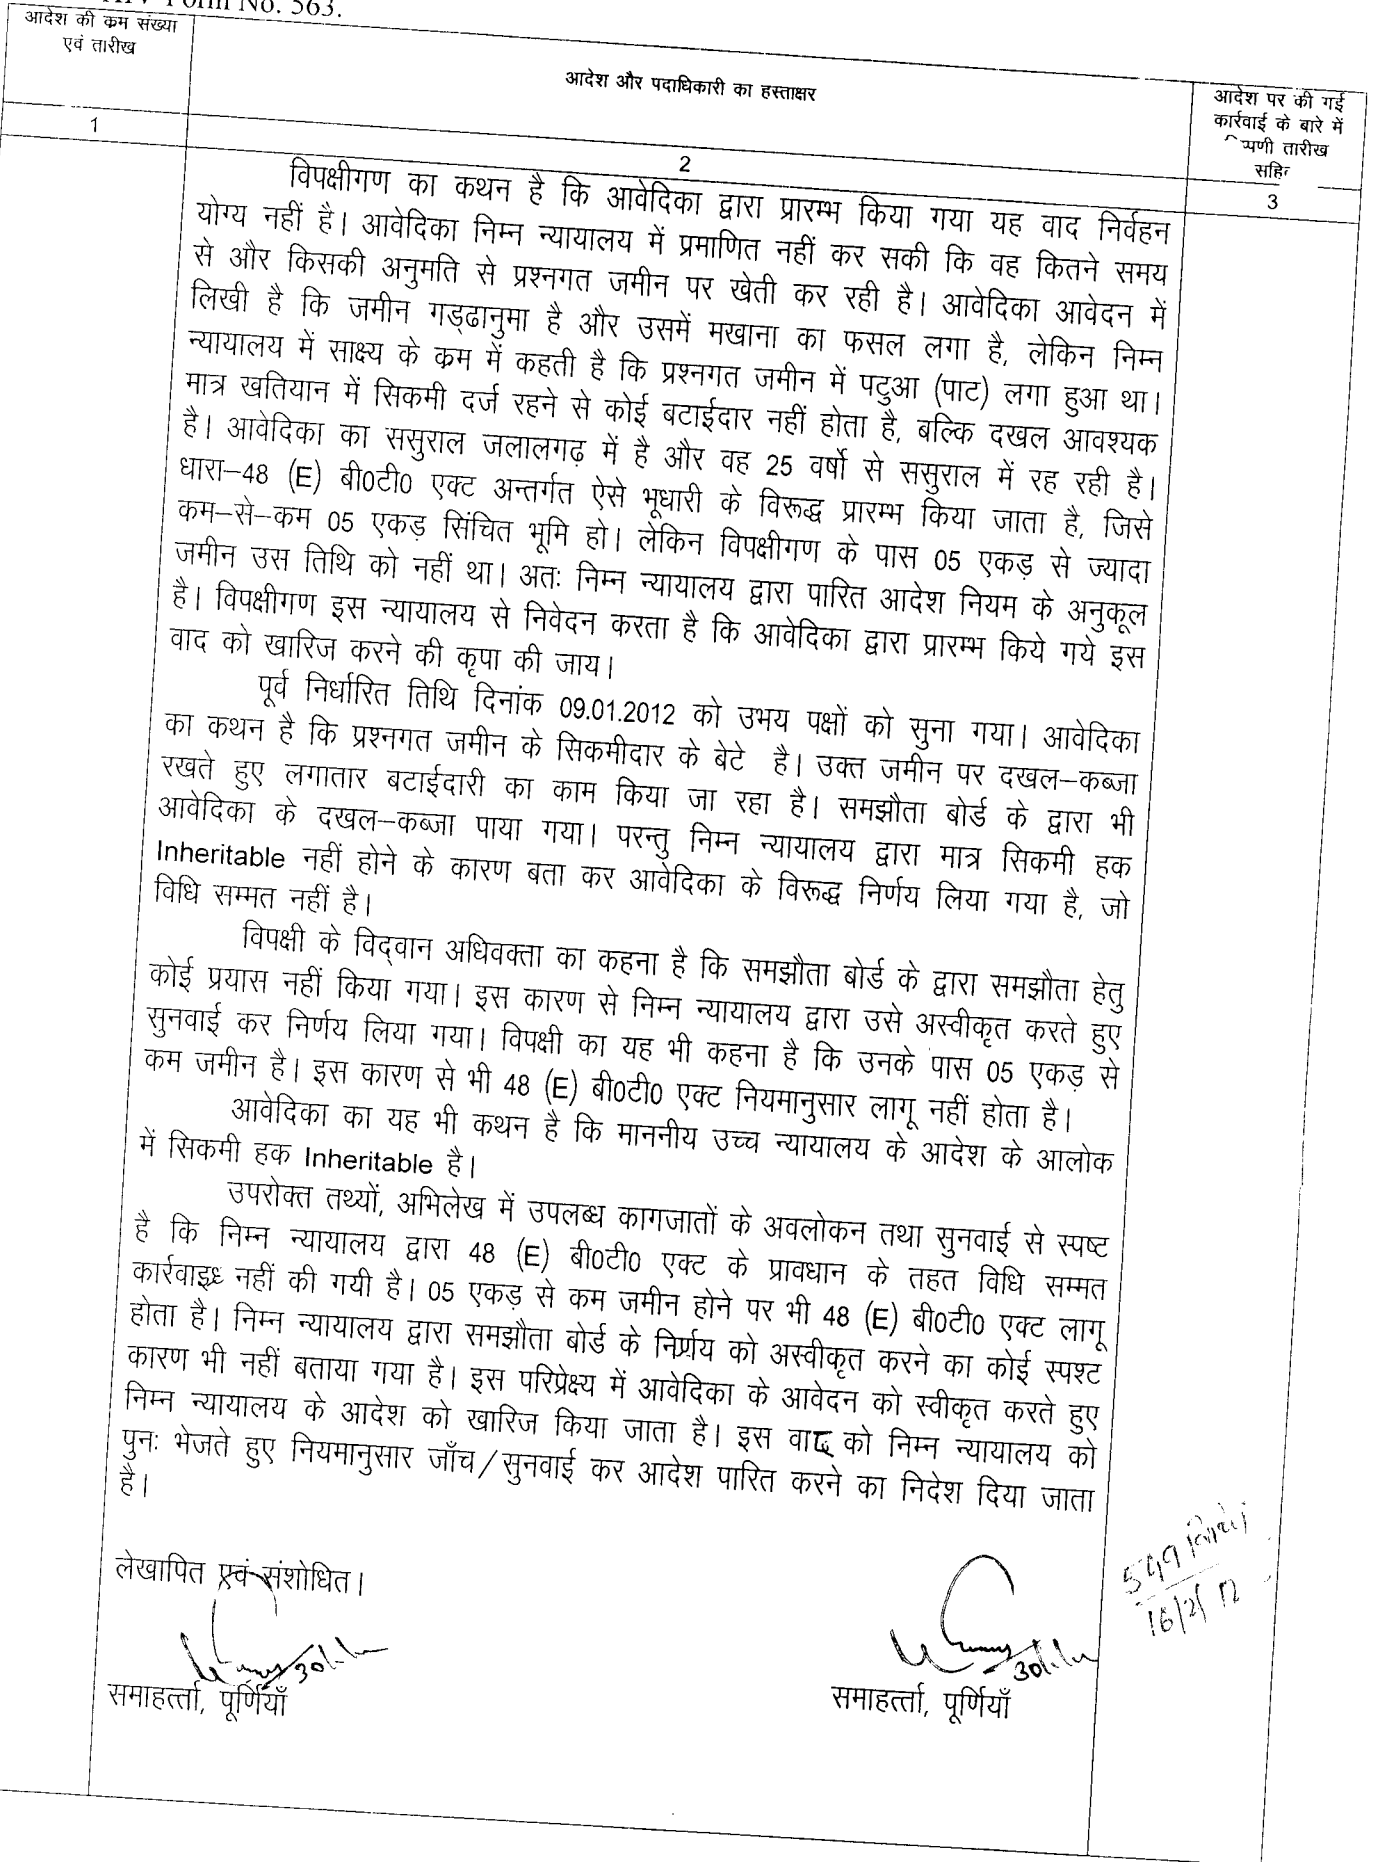 Form No. 563.
आदेश की क्रम संख्या
एवं तारीख
आदेश और पदाधिकारी का हस्ताक्षर
आदेश पर की गई
कार्रवाई के बारे में
टिप्पणी तारीख
सहित
1
2
3
विपक्षीगण का कथन है कि आवेदिका द्वारा प्रारम्भ किया गया यह वाद निर्वहन
योग्य नहीं है। आवेदिका निम्न न्यायालय में प्रमाणित नहीं कर सकी कि वह कितने समय
से और किसकी अनुमति से प्रश्नगत जमीन पर खेती कर रही है। आवेदिका आवेदन में
लिखी है कि जमीन गड्ढानुमा है और उसमें मखाना का फसल लगा है, लेकिन निम्न
न्यायालय में साक्ष्य के क्रम में कहती है कि प्रश्नगत जमीन में पटुआ (पाट) लगा हुआ था।
मात्र खतियान में सिकमी दर्ज रहने से कोई बटाईदार नहीं होता है, बल्कि दखल आवश्यक
है। आवेदिका का ससुराल जलालगढ़ में है और वह 25 वर्षो से ससुराल में रह रही है।
धारा–48 (E) बी0टी0 एक्ट अन्तर्गत ऐसे भूधारी के विरूद्ध प्रारम्भ किया जाता है, जिसे
कम–से–कम 05 एकड़ सिंचित भूमि हो। लेकिन विपक्षीगण के पास 05 एकड़ से ज्यादा
जमीन उस तिथि को नहीं था। अतः निम्न न्यायालय द्वारा पारित आदेश नियम के अनुकूल
है। विपक्षीगण इस न्यायालय से निवेदन करता है कि आवेदिका द्वारा प्रारम्भ किये गये इस
वाद को खारिज करने की कृपा की जाय।
पूर्व निर्धारित तिथि दिनांक 09.01.2012 को उभय पक्षों को सुना गया। आवेदिका
का कथन है कि प्रश्नगत जमीन के सिकमीदार के बेटे है। उक्त जमीन पर दखल–कब्जा
रखते हुए लगातार बटाईदारी का काम किया जा रहा है। समझौता बोर्ड के द्वारा भी
आवेदिका के दखल–कब्जा पाया गया। परन्तु निम्न न्यायालय द्वारा मात्र सिकमी हक
Inheritable नहीं होने के कारण बता कर आवेदिका के विरूद्ध निर्णय लिया गया है, जो
विधि सम्मत नहीं है।
विपक्षी के विद्वान अधिवक्ता का कहना है कि समझौता बोर्ड के द्वारा समझौता हेतु
कोई प्रयास नहीं किया गया। इस कारण से निम्न न्यायालय द्वारा उसे अस्वीकृत करते हुए
सुनवाई कर निर्णय लिया गया। विपक्षी का यह भी कहना है कि उनके पास 05 एकड़ से
कम जमीन है। इस कारण से भी 48 (E) बी0टी0 एक्ट नियमानुसार लागू नहीं होता है।
आवेदिका का यह भी कथन है कि माननीय उच्च न्यायालय के आदेश के आलोक
में सिकमी हक Inheritable है।
उपरोक्त तथ्यों, अभिलेख में उपलब्ध कागजातों के अवलोकन तथा सुनवाई से स्पष्ट
है कि निम्न न्यायालय द्वारा 48 (E) बी0टी0 एक्ट के प्रावधान के तहत विधि सम्मत
कार्रवाई नहीं की गयी है। 05 एकड़ से कम जमीन होने पर भी 48 (E) बी0टी0 एक्ट लागू
होता है। निम्न न्यायालय द्वारा समझौता बोर्ड के निर्णय को अस्वीकृत करने का कोई स्पश्ट
कारण भी नहीं बताया गया है। इस परिप्रेक्ष्य में आवेदिका के आवेदन को स्वीकृत करते हुए
निम्न न्यायालय के आदेश को खारिज किया जाता है। इस वाद को निम्न न्यायालय को
पुनः भेजते हुए नियमानुसार जाँच/सुनवाई कर आदेश पारित करने का निदेश दिया जाता
है।
लेखापित एवं संशोधित।
समाहर्त्ता, पूर्णियाँ
समाहर्त्ता, पूर्णियाँ
16/2/12